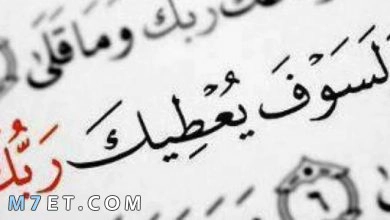 ربك وما قلى
لسوف يعطيك رب
٦
M7ET.COM